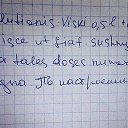 lutionis Viski 0,5 l
isce ut fiat sus
a tales doses nume
gna. По настроени